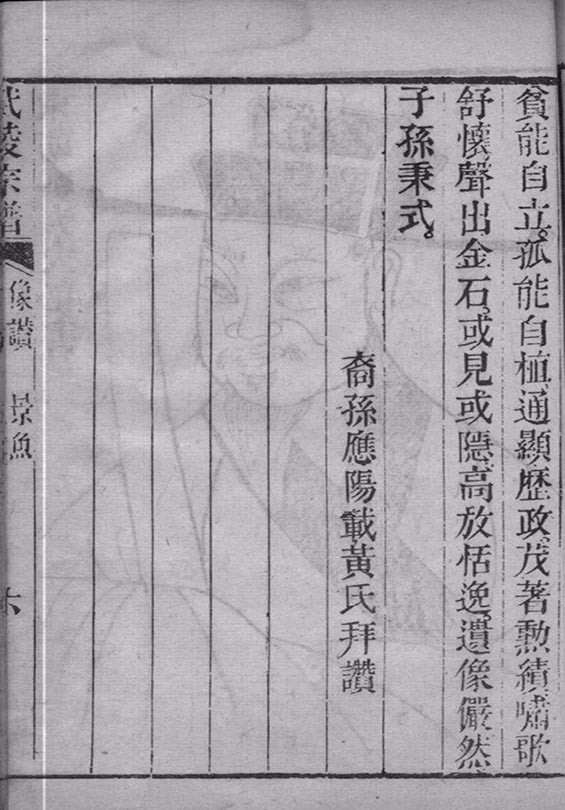 貧能自立。孤能自植、通顯歷政、茂著勲績、嘯歌
舒懷、聲出金石、或見或隱、高放恬逸、遺像儼然、
子孫秉式。
裔孫應陽載黃氏拜讚
武陵宗譜
像讚 景魚
六